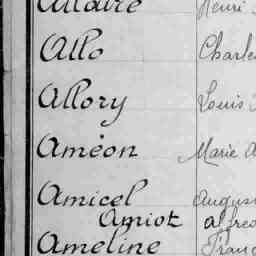 Allaire Henri
Allo Charles
Allory Louis
Améon Marie
Amicel August
Amiot Alfred
Ameline Franç